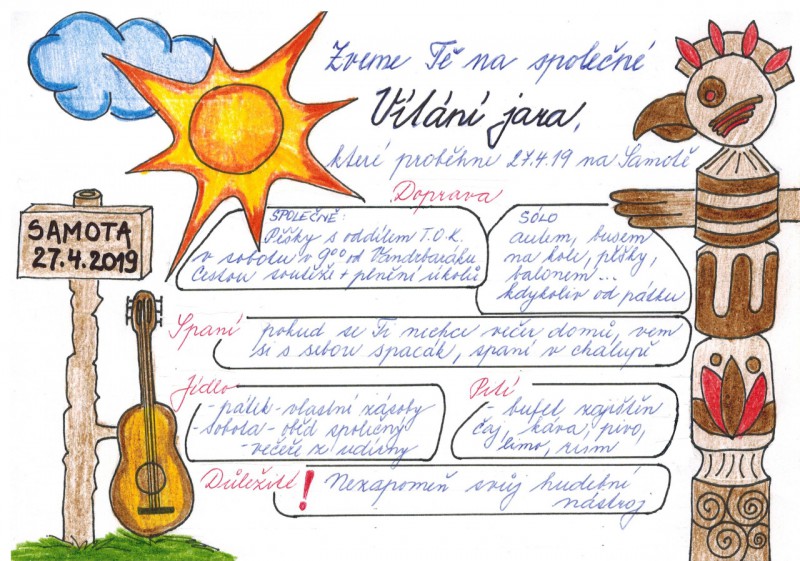 Zveme Tě na společné
Vítání jara,
které proběhne 27.4.19 na Samotě
SAMOTA
27.4.2019
Doprava
SPOLEČNĚ:
Pěšky s oddílem T.O.K.
v sobotu v 9⁰⁰ od Vandrbaráku
Cestou soutěže + plnění úkolů
SÓLO
autem, busem
na kole, pěšky,
balonem...
kdykoliv od pátku
Spaní
pokud se Ti nechce večer domů, vem
si s sebou spacák, spaní v chalupě
Jídlo
- pátek - vlastní zásoby
- sobota - oběd společný
- večeře z udírny
Pití
- bufet zajištěn
čaj, káva, pivo,
limo, rum
Důležité!
Nezapomeň svůj hudební
nástroj